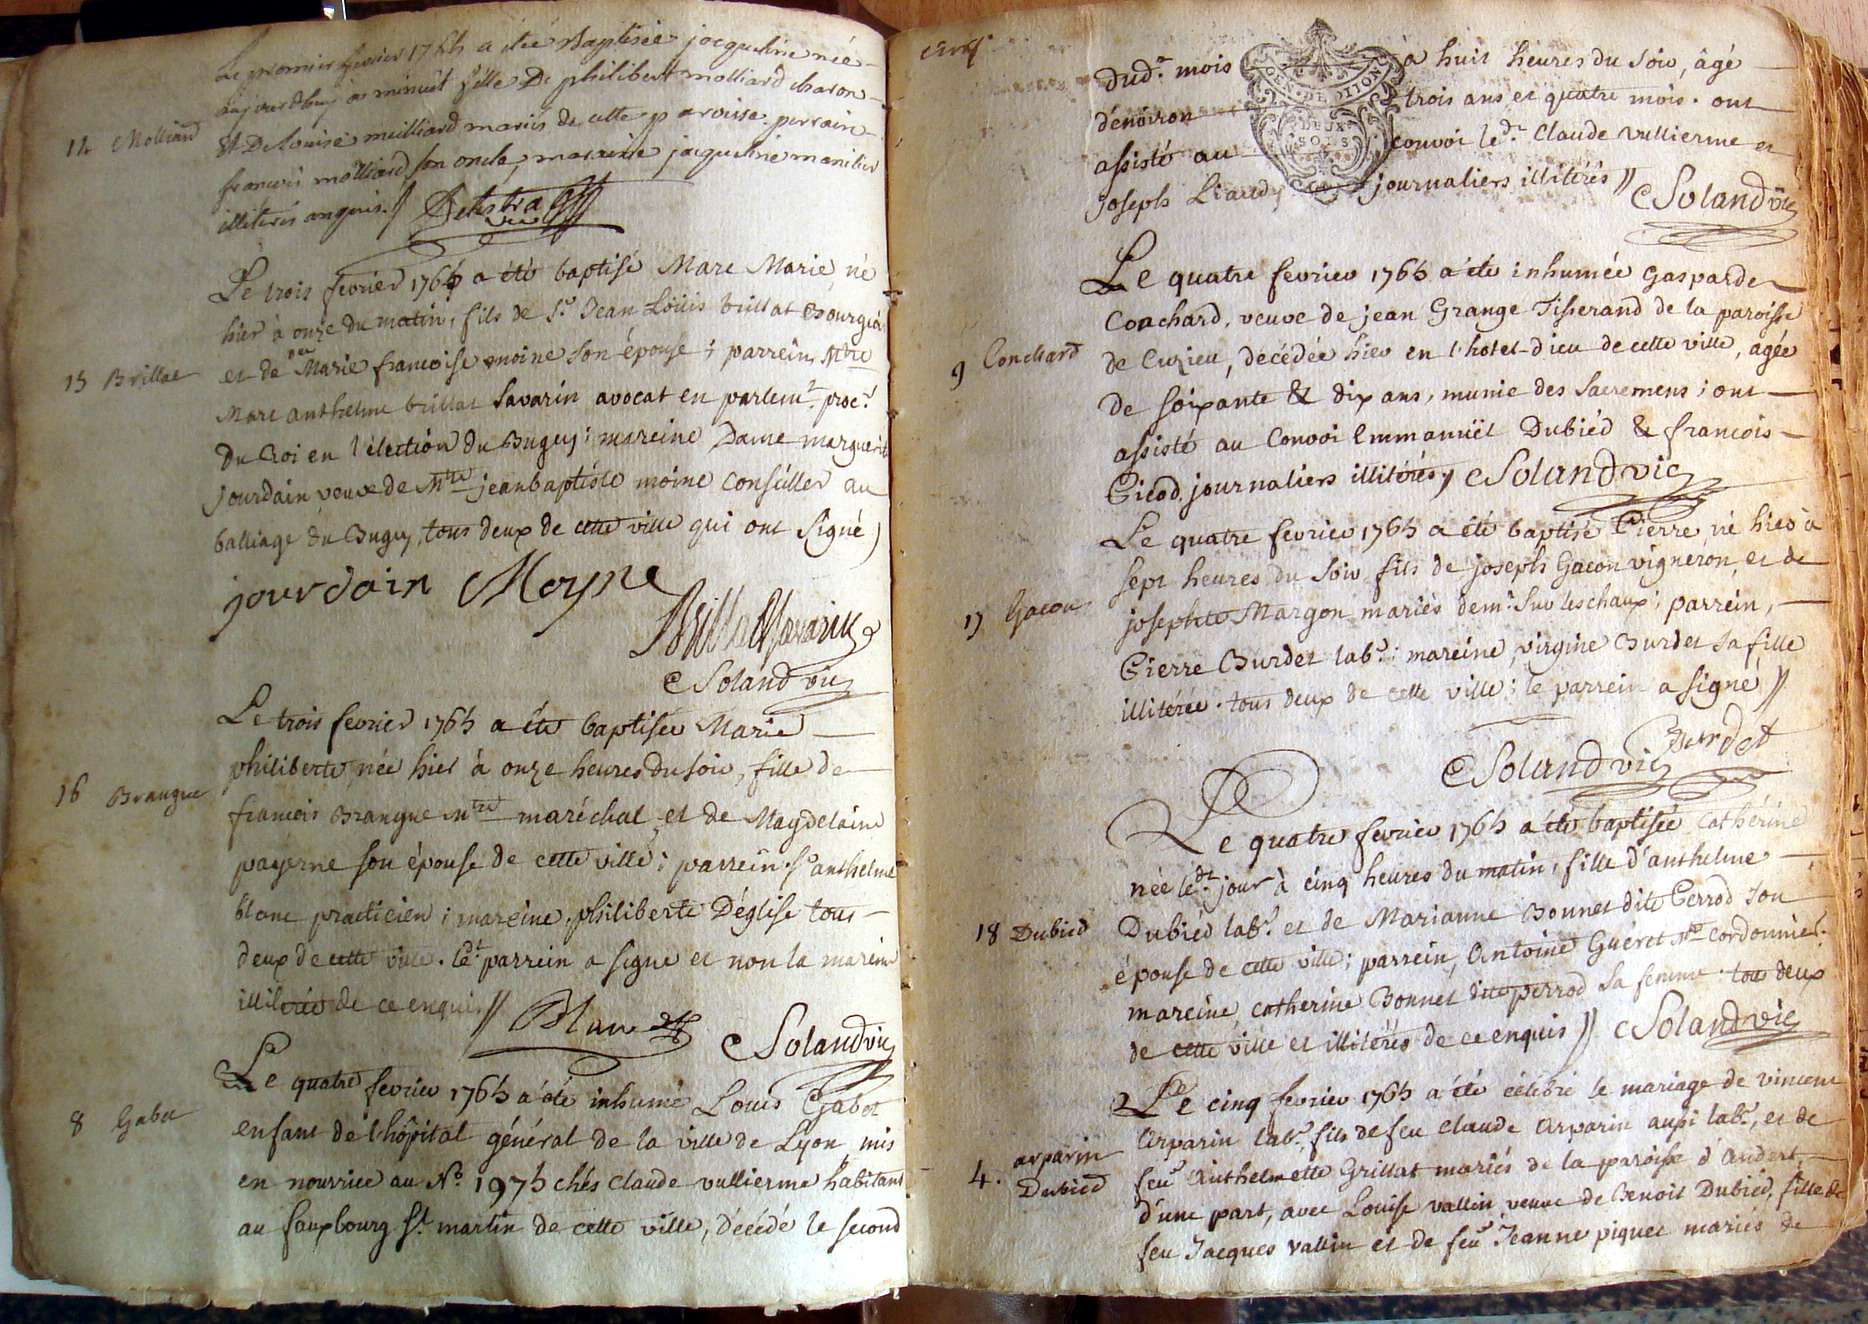 Le premier fevrier 1765 a étée Baptisée jacqueline née
aujourdhuy a minuit fille De philibert molliard charon
14 Molliard
Et De Louise milliard mariés de cette paroisse. perrain
francois molliard son oncle, maraine jacqueline
illiterés enquis.//
Le trois fevrier 1765 a été baptisé Marc Marie, né
hier à onze du matin, fils de Sr. Jean Loüis brillat Bourgeois
15 Brillat
et de Dlle Marie francoise moine son épouse; parrein, Mtre
Marc anthelme brillat Savarin avocat en parlemt. procr.
du Roi en l'élection du Bugey; mareine Dame marguerite
jourdain veuve de Mtre jeanbaptiste moine conseiller au
balliage du Bugey, tous deux de cette ville qui ont signé)
jourdain Moyne
Brillat Savarin
Soland vic
Le trois fevrier 1765 a été baptisée Marie
philiberte, née hier à onze heures du soir, fille de
16 Brangue
francois Brangue Mtre maréchal, et de Magdelaine
payerne son épouse de cette ville; parrein Sr anthelme
blanc practicien; mareine philiberte Déglise tous
deux de cette ville. ledt. parrein a signé et non la mareine
illitérée de ce enquis //
Blanc
Soland vic
Le quatre fevrier 1765 a été inhumé Louis Gabet
8 Gabet
enfant de l'hôpital général de la ville de Lyon mis
en nourrice au No. 1975 chés claude vullierme habitant
au fauxbourg St. martin de cette ville, décédé le second
dudt. mois à huit heures du soir, âgé
d'énoiron trois ans et quatre mois. ont
GEN. DE DIJON
DEUX
SOLS
assisté au convoi ledt. Claude Vullierme et
Joseph Liaudy journaliers illitérés //
Soland vic
Le quatre fevrier 1765 a été inhumée Gasparde
Couchard, veuve de jean Grange Tisserand de la paroisse
9 Conchard
de Cuzieu, décédée hier en l'hotel-dieu de cette ville, agée
de soixante & dix ans, munie des Sacremens; ont
assisté au Convoi Emmanüel Dubiéd & francois
Picod, journaliers illitérés // Soland vic
Le quatre fevrier 1765 a été baptisé Pierre, né hier à
sept heures du soir fils de joseph Gacon vigneron, et de
17 Gacon
josephte Margon mariés demt. sur leschaux; parrein,
Pierre Burdet labr.; mareine, virgine Burdet sa fille
illitérée. tous deux de cette ville; le parrein a signé //
Burdet
Soland vic
Le quatre fevrier 1765 a été baptisée Cathérine
née ledt. jour à cinq heures du matin, fille d'anthelme
18 Dubied
Dubiéd labr. et de Marianne Bonnet dite Perrod son
épouse de cette ville; parrein, Antoine Guéret Mtre cordonnier.
mareine catherine Bonnet dite perrod sa femme. tous deux
de cette ville et illitérés de ce enquis // Soland vic
Le cinq fevrier 1765 a été célébré le mariage de vincent
arparin
Arparin labr. fils de feu claude Arparin aussi labr., et de
4. Dubied
feüe Anthelmette Grillat mariés de la paroisse d'Andert
d'une part, avec Louise vallin veuve de Benoit Dubied, fille de
feu Jacques vallin et de feüe Jeanne piquet mariés de